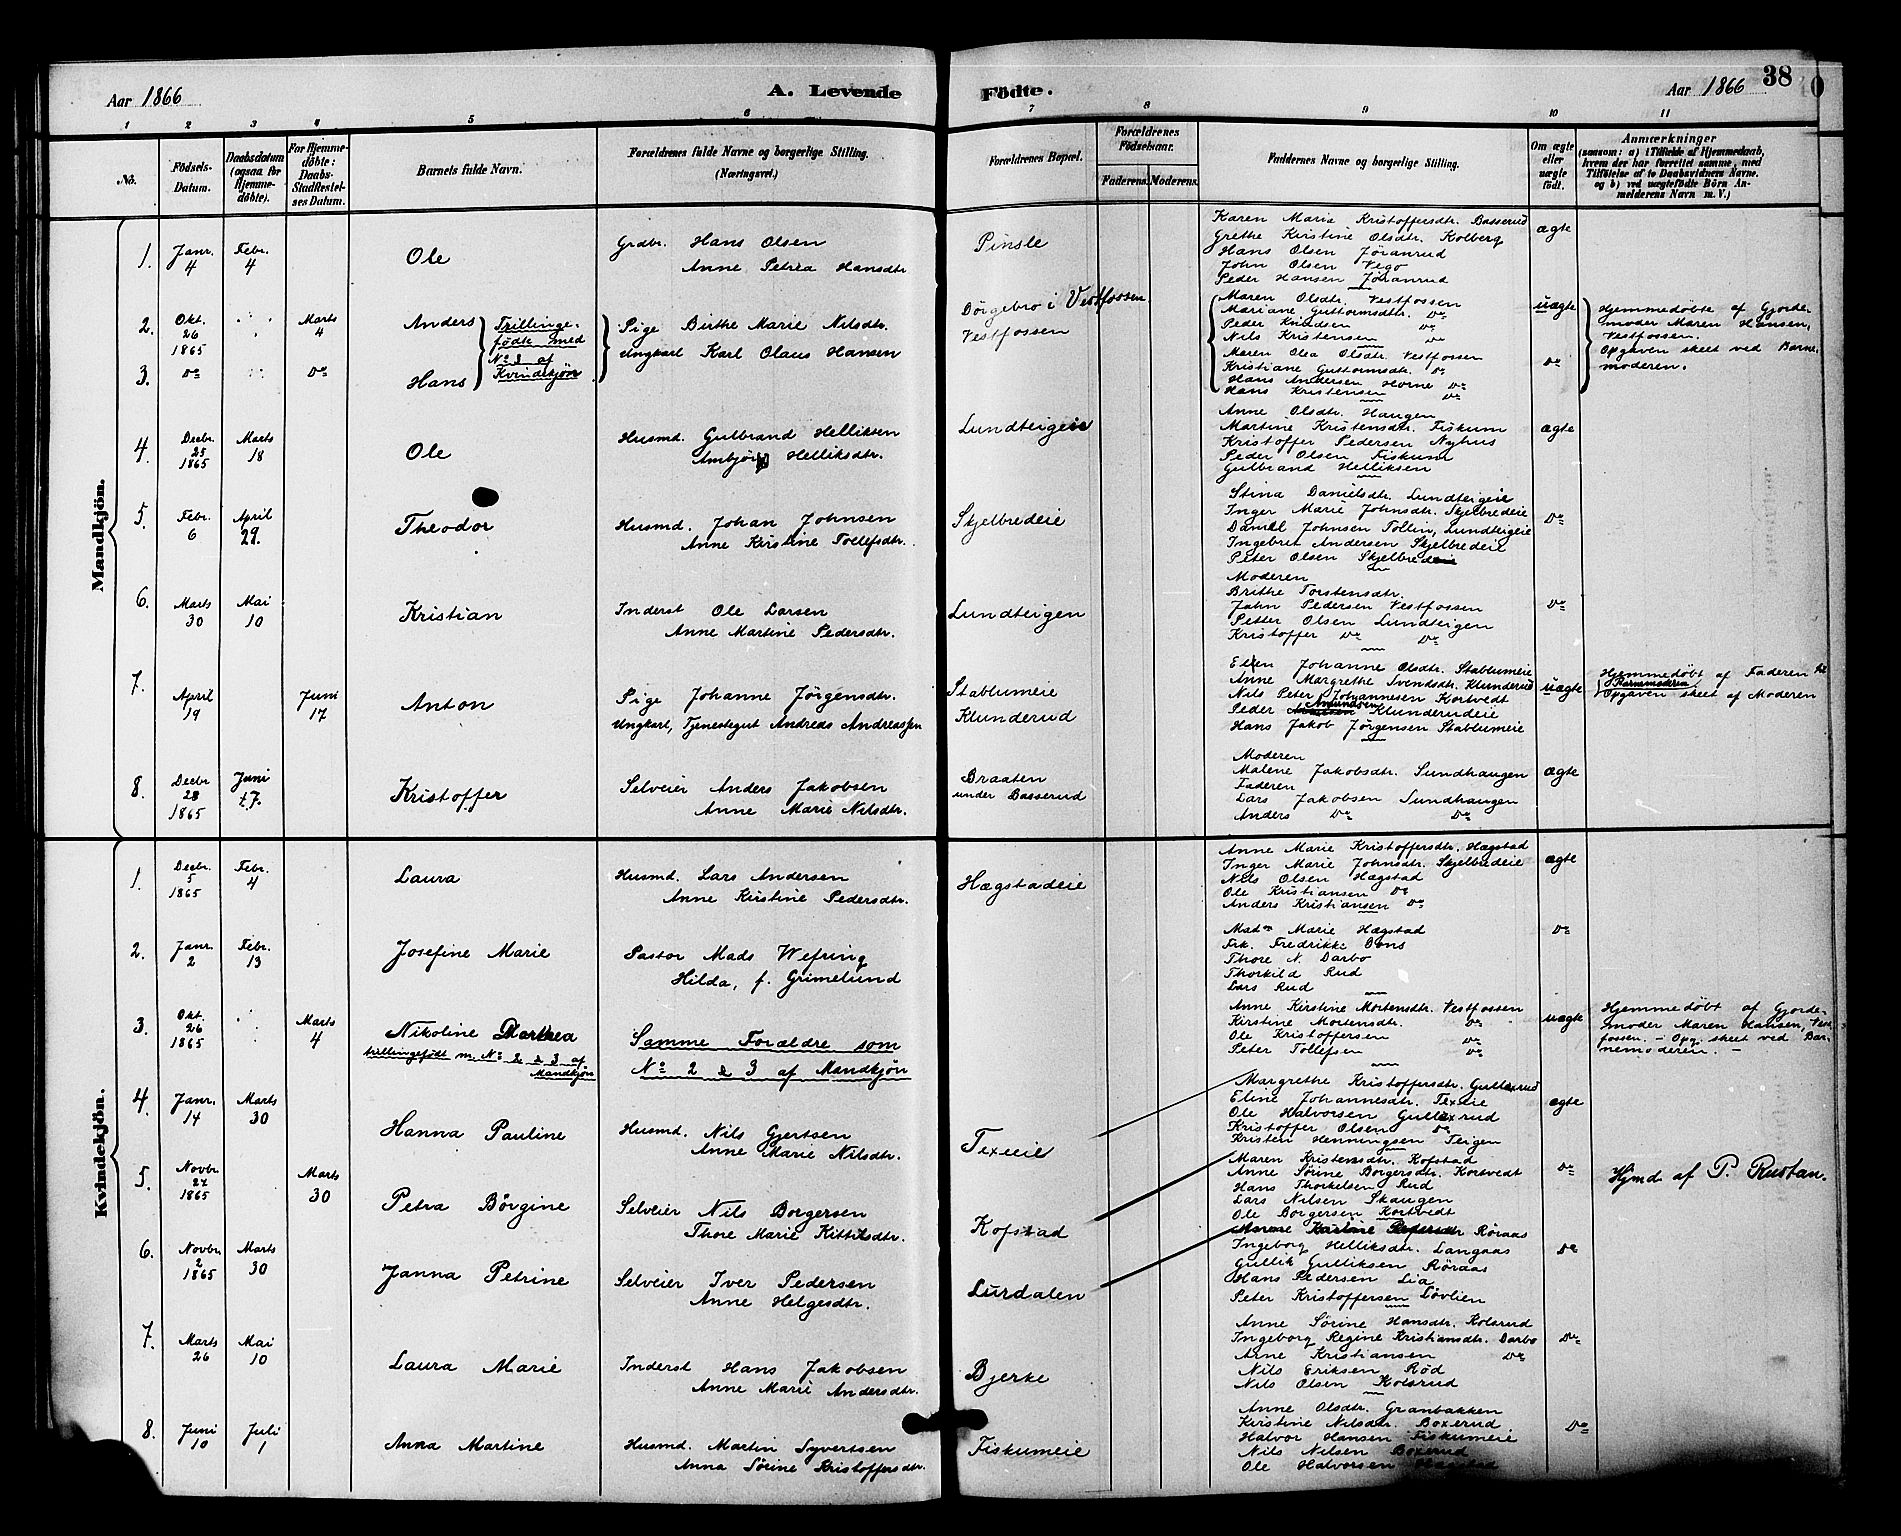 Aar 1866
A. Levende
Födte.
Aar 1866
38
1 2 3 4 5 6 7 8 9 10 11
No.
Födsels-Datum.
Daabsdatum (ogsaa for Hjemme-döbte).
For Hjemme-döbte: Daabs-Stadfæstel-ses Datum.
Barnets fulde Navn.
Forældrenes fulde Navne og borgerlige Stilling.
(Næringsvei.)
Forældrenes Bopæl.
Forældrenes Födselsaar.
Faderens. Moderens.
Faddernes Navne og borgerlige Stilling.
Om ægte eller uægte födt.
Anmærkninger
(saasom: a) i Tilfælde af Hjemmedaab,
hvem der har forrettet samme, med
Tilföielse af to Daabsvidners Navne.
og b) ved uægtefödte Börn An-
melderens Navn m. V.)
Mandkjön.
1. Janr. 4 Febr. 4 Ole
Grdbr. Hans Olsen
Anne Petrea Hansdtr
Pinsle
Karen Marie Kristoffersdtr. Basserud
Grethe Kristine Olsdtr. Kolberg
Hans Olsen Jøranrud
John Olsen Vego
Peder Hansen Jøranrud
ægte
2. Okt. 26 1865 Marts 4 Anders
3. Do Do Hans
Trillinge.
födte med
No 3 af
Kvindekjön
Pige Birthe Marie Nilsdtr.
Ungkarl Karl Olaus Hansen
Dörgebro i Vestfossen
Vestfossen
Maren Olsdtr. Vestfossen
Mariane Guttormsdtr. Do
Peder Knudsen Do
Nils Kristensen Do
Maren Olea Olsdtr. Vestfossen
Kristiane Guttormsdtr. Do
Hans Andersen Horne Do
Hans Kristensen Do
uægte
Do
Hjemmedöbte af Gjorde-
moder Maren Hansen,
Vestfossen.
Opgaven skeet ved Barne-
moderen.
4. Decbr. 25 1865 Marts 18 Ole
Husmd. Gulbrand Helliksen
Ambjør Helliksdtr.
Lundteigeie
Anne Olsdtr. Haugen
Martine Kristensdtr. Fiskum
Kristoffer Pedersen Nyhus
Peder Olsen Fiskum
Gulbrand Helliksen
ægte
5. Febr. 6 April 29. Theodor
Husmd. Johan Johnsen
Anne Kirstine Tollefsdtr.
Skjelbredeie
Stina Danielsdtr. Lundteigeie
Inger Marie Johnsdtr. Skjelbredeie
Daniel Johnsen Tollin, Lundteigeie
Ingebret Andersen Skjelbredeie
Peter Olsen Skjelbred
Do
6. Marts 30 Mai 10 Kristian
Inderst Ole Larsen
Anne Martine Pedersdtr.
Lundteigen
Moderen
Brithe Torstensdtr.
John Pedersen Vestfossen
Petter Olsen Lundteigen
Kristoffer Do Do
Do
7. April 19 Juni 17 Anton
Pige Johanne Jørgensdtr.
Ungkarl, Tjenestegut Andreas Andreassen
Stablumeie
Klunderud
Ellen Johanne Olsdtr. Stablumeie
Anne Margrethe Svendsdtr. Klunderud
Nils Peter Johannesen Kortvedt
Peder Amundsen Klunderudeie
Hans Jakob Jørgensen Stablumeie
uægte
Hjemmedöbt af Faderen til
Barnmoderen
Opgaven skeet af Moderen
8. Decbr 28 1865 Juni 17. Kristoffer
Selveier Anders Jakobsen
Anne Marie Nilsdtr.
Braaten
under Basserud
Moderen
Malene Jakobsdtr. Sundhaugen
Faderen
Lars Jakobsen Sundhaugen
Anders Do Do
ægte
Kvindekjön.
1. Decbr. 5 1865 Febr. 4 Laura
Husmd. Lars Andersen
Anne Kirstine Pedersdtr.
Hægstadeie
Anne Marie Kristoffersdtr. Hægstad
Inger Marie Johnsdtr. Skjelbredeie
Nils Olsen Hægstad
Ole Kristiansen Do
Anders Kristiansen Do
ægte
2. Janr. 2 Febr. 13 Josefine Marie
Pastor Mads Wefring
Hilda, f. Grimelund
Madm Marie Hægstad
Frk. Fredrikke Dons
Thore N. Darbo
Thorkild Rud
Lars Rud
Do
3. Okt. 26 1865 Marts 4 Nikoline Dorthea
trillingefödt m. No 2 & 3 af
Mandkjön
Samme Forældre som
No 2 & 3 af Mandkjön
Anne Kirstine Mortensdtr. Vestfossen
Kirstine Mortensdtr. Do
Ole Kristoffersen Do
Peter Tollefsen Do
uægte
Hjemmedöbt af Gjorde-
moder Maren Hansen, Vest-
fossen. – Opg. skeet ved Bar-
nemoderen. –
4. Janr. 14 Marts 30 Hanna Pauline
Husmd. Nils Gjertsen
Anne Marie Nilsdtr.
Texeie
Margrethe Kristoffersdtr. Gullaxrud
Eline Johannesdtr. Texeie
Ole Halvorsen Gullaxrud
Kristoffer Olsen Do
Kristen Henningsen Teigen
ægte
5. Novbr. 27 1865 Marts 30 Petra Börgine
Selveier Nils Borgersen
Thore Marie Kittilsdtr.
Kofstad
Maren Kristensdtr. Kofstad
Anne Sörine Borgersdtr. Kortvedt
Hans Thorkelsen Rud
Lars Nilsen Skaugen
Ole Borgersen Kortvedt
Do
Hjmd. af P. Rustan.
6. Novbr. 2 1865 Marts 30 Janna Petrine
Selveier Iver Pedersen
Anne Helgesdtr.
Lurdalen
Röraas
Ingeborg Helliksdtr. Langaas
Gullik Gulliksen Röraas
Hans Pedersen Lia
Peter Kristoffersen Lövlien
Do
7. Marts 26 Mai 10 Laura Marie
Inderst Hans Jakobsen
Anne Marie Andersdtr.
Bjerke
Anne Sörine Hansdtr. Kolsrud
Ingeborg Regine Kristiansdtr. Darbo
Arne Kristiansen Do
Nils Eriksen Röd
Nils Olsen Kolsrud
Do
8. Juni 10 Juli 1 Anna Martine
Husmd. Martin Syvertsen
Anna Sörine Kristoffersdtr.
Fiskumeie
Anne Olsdtr. Granbakken
Kirstine Nilsdtr. Boxerud
Halvor Hansen Fiskumeie
Nils Nilsen Boxerud
Ole Halvorsen
Do